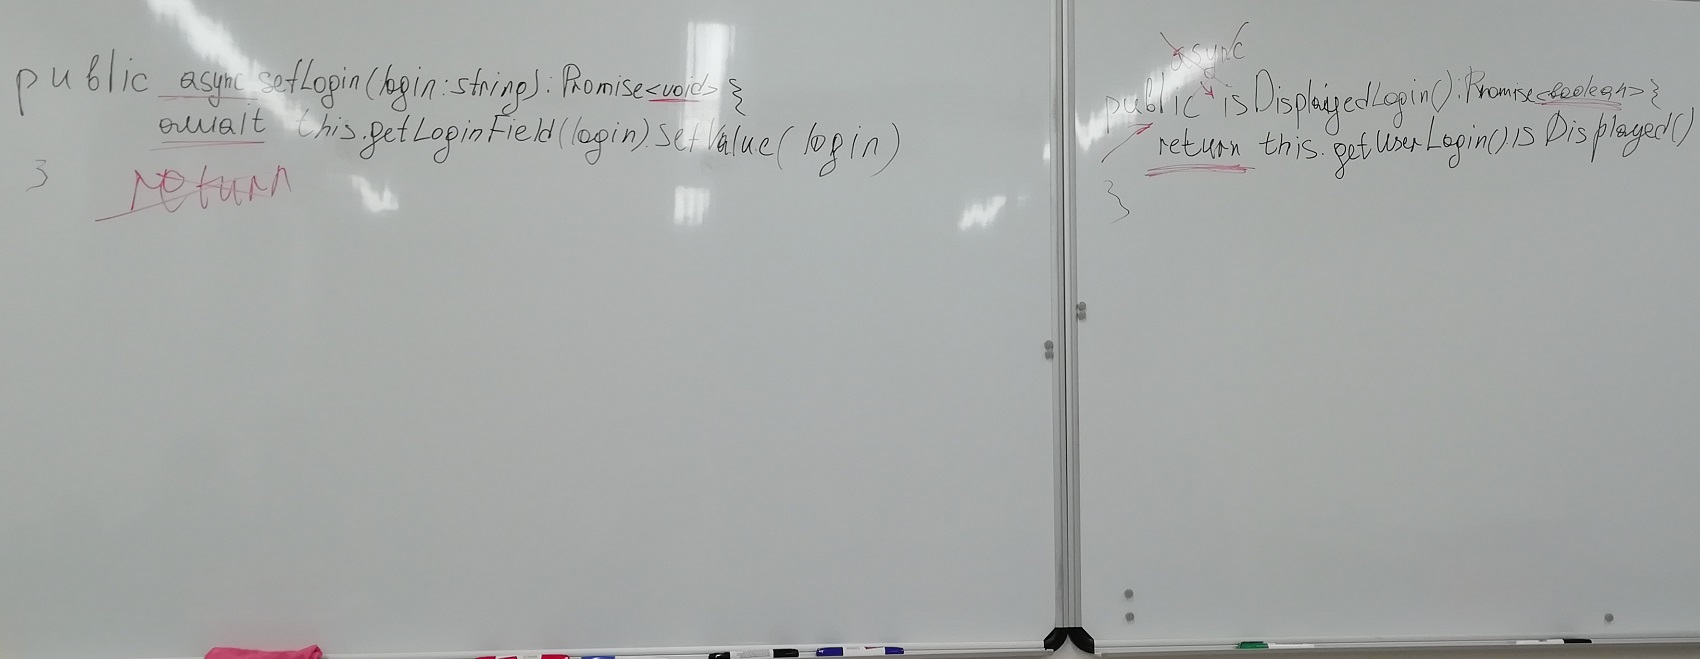 public async setLogin(login:string): Promise<void> {
await this.getLoginField(login).setValue(login)
}
return
async
public isDisplayedLogin(): Promise<boolean> {
return this.getUserLogin().isDisplayed()
}